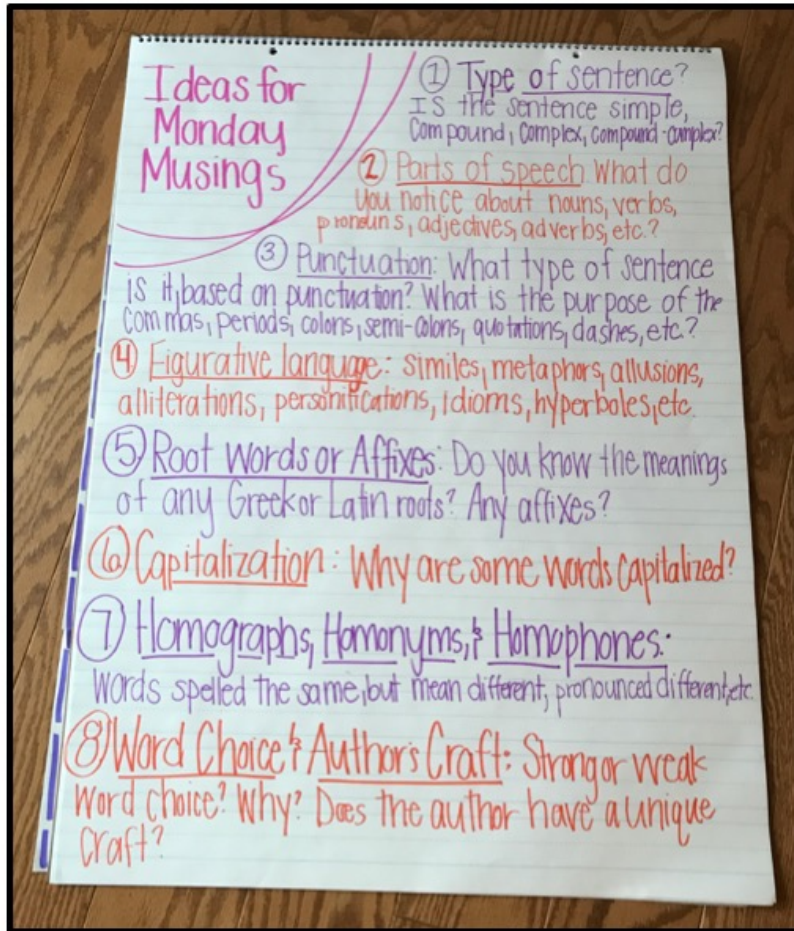 Ideas for
Monday
Musings
① Type of sentence?
Is the sentence simple,
compound, complex, compound-complex?
② Parts of speech. What do
you notice about nouns, verbs,
pronouns, adjectives, adverbs, etc.?
③ Punctuation: What type of sentence
is it, based on punctuation? What is the purpose of the
commas, periods, colons, semi-colons, quotations, dashes, etc.?
④ Figurative language: similes, metaphors, allusions,
alliterations, personifications, idioms, hyperboles, etc.
⑤ Root Words or Affixes: Do you know the meanings
of any Greek or Latin roots? Any affixes?
⑥ Capitalization: Why are some words capitalized?
⑦ Homographs, Homonyms, & Homophones:
Words spelled the same, but mean different, pronounced different, etc.
⑧ Word Choice & Author's Craft: Strong or weak
word choice? Why? Does the author have a unique
craft?